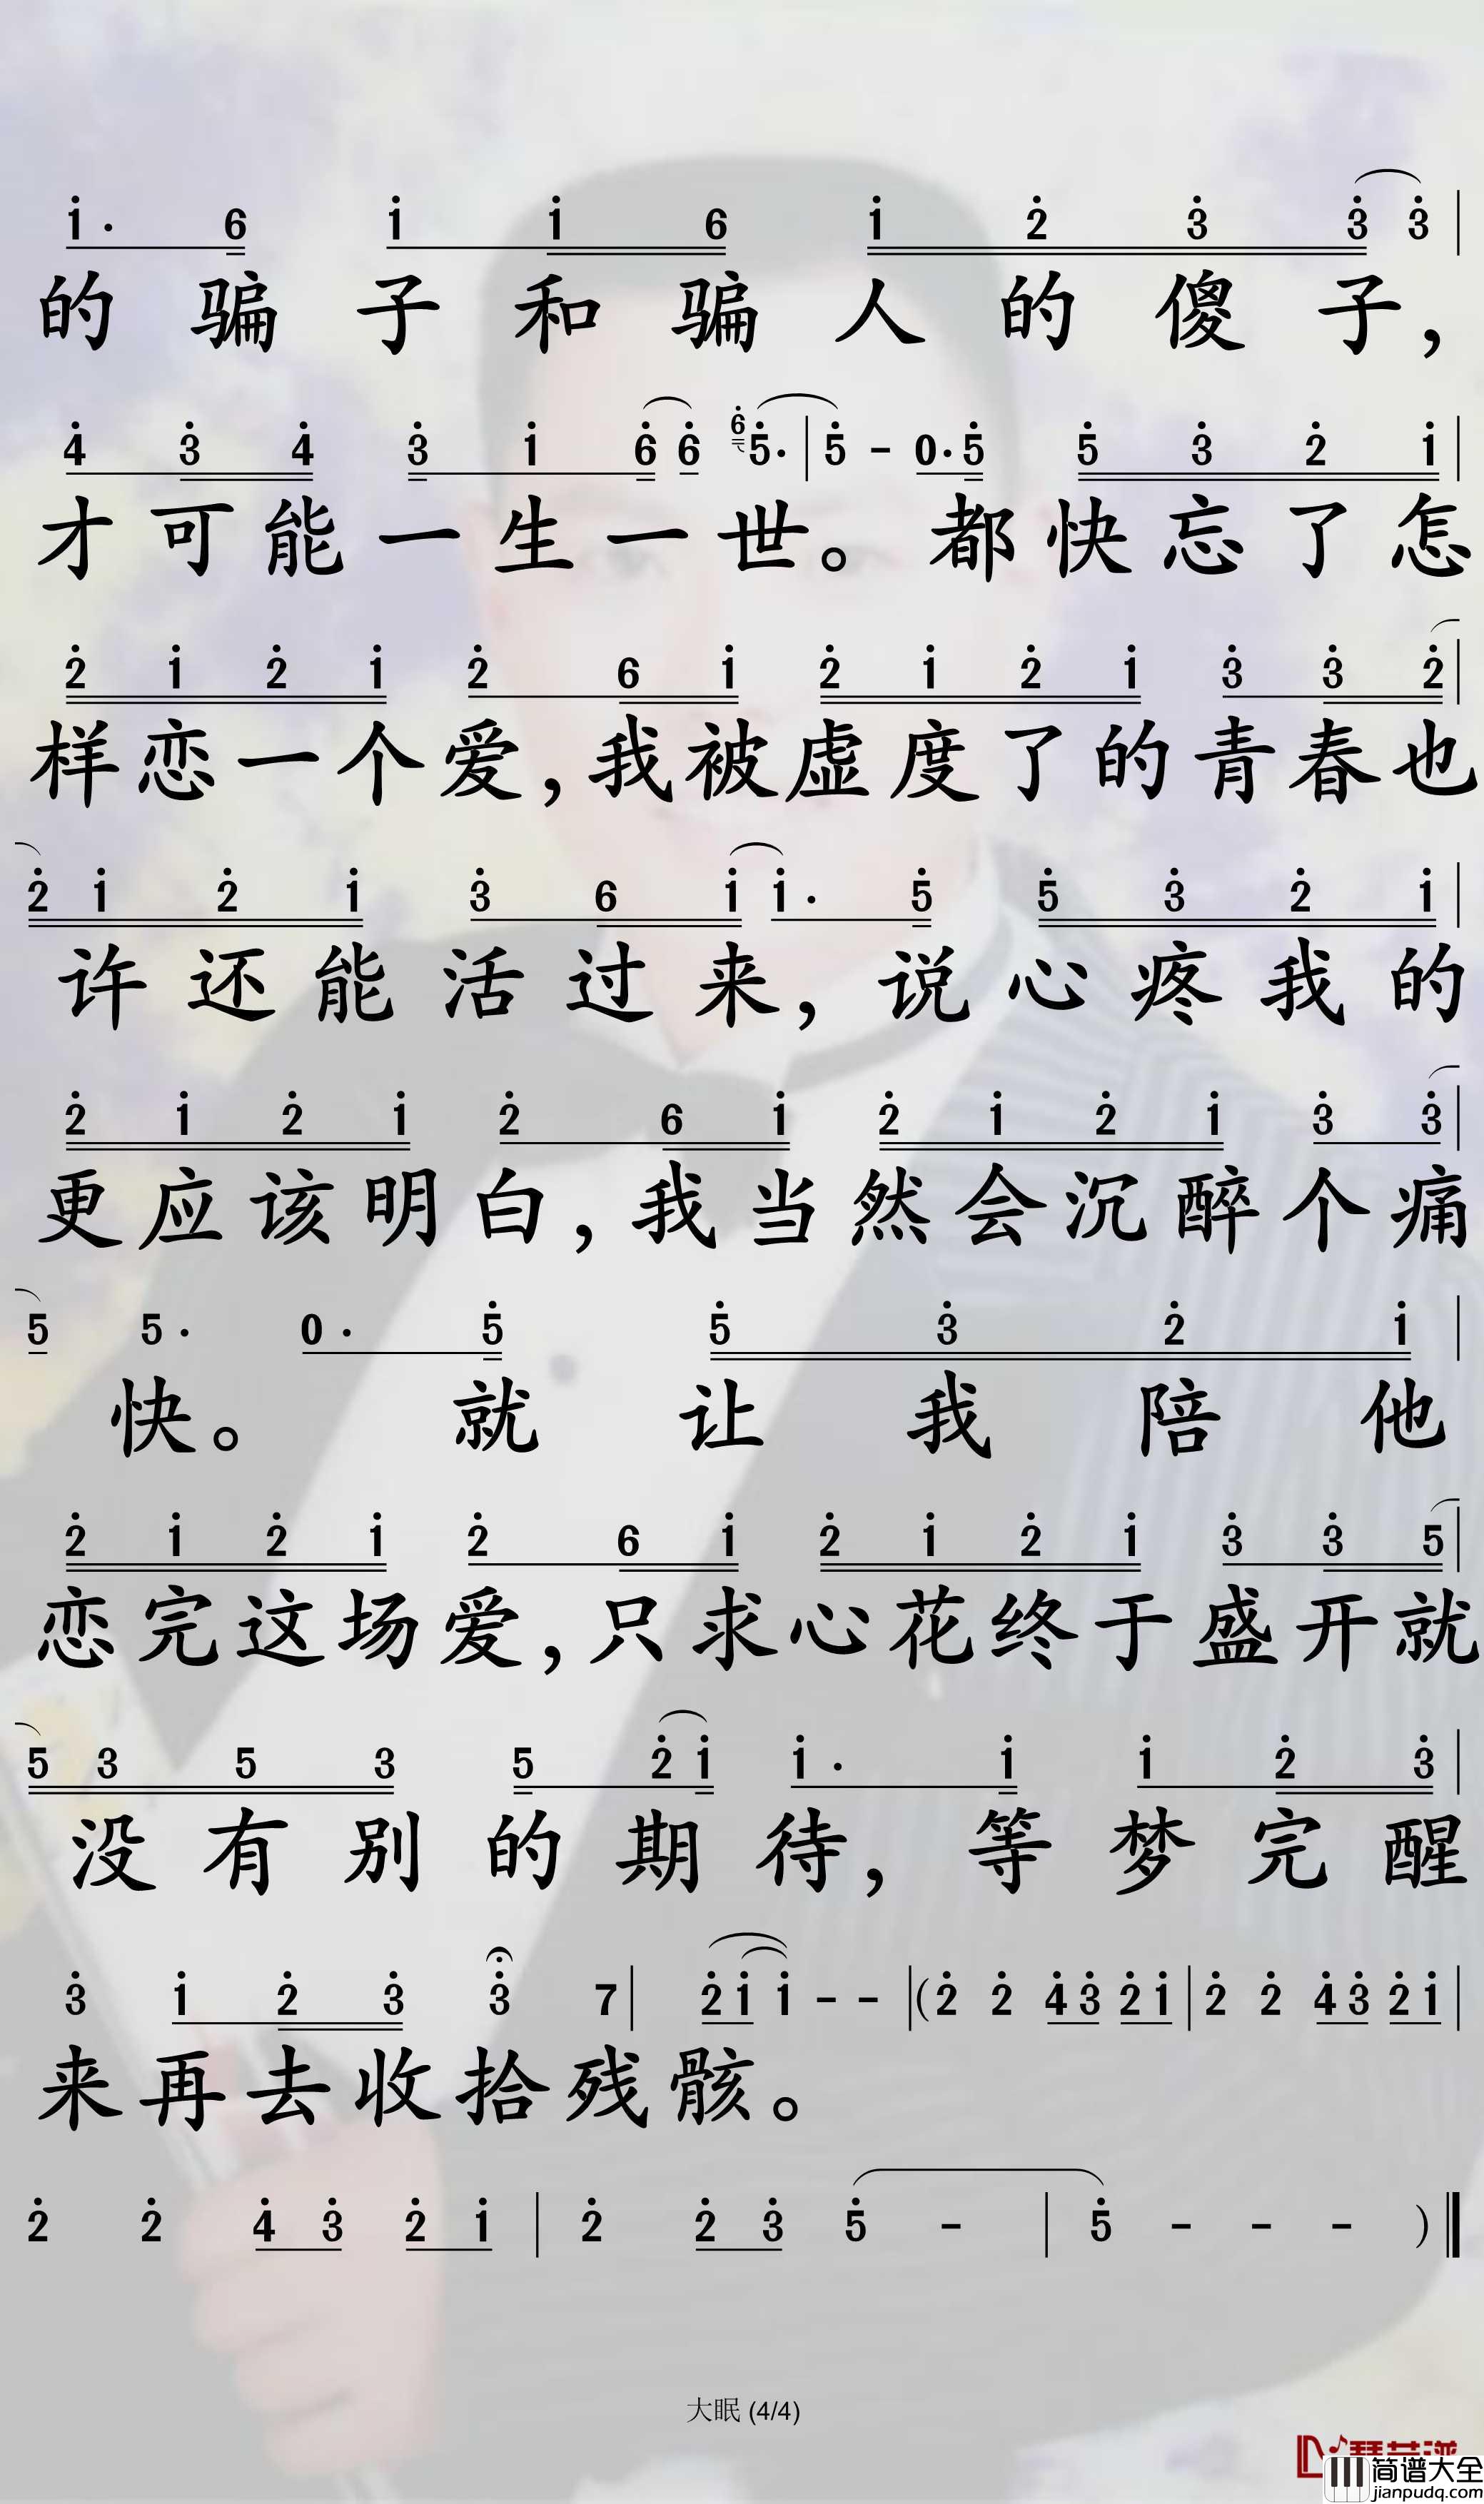 1̇· 6 1̇ 1̇ 6 1̇ 2̇ 3̇ 3̇ 3̇ |
的骗子和骗人的傻子，
4̇ 3̇ 4̇ 3̇ 1̇ 6̇ 6̇ 6̇ 5̇· | 5̇ - 0· 5̇ 5̇ 3̇ 2̇ 1̇ |
才可能一生一世。都快忘了怎
2̇ 1̇ 2̇ 1̇ 2̇ 6 1̇ 2̇ 1̇ 2̇ 1̇ 3̇ 3̇ 2̇ |
样恋一个爱，我被虚度了的青春也
2̇ 1̇ 2̇ 1̇ 3̇ 6 1̇ 1̇· 5̇ 5̇ 3̇ 2̇ 1̇ |
许还能活过来，说心疼我的
2̇ 1̇ 2̇ 1̇ 2̇ 6 1̇ 2̇ 1̇ 2̇ 1̇ 3̇ 3̇ |
更应该明白，我当然会沉醉个痛
5 5· 0· 5̇ 5̇ 3̇ 2̇ 1̇ |
快。就让我陪他
2̇ 1̇ 2̇ 1̇ 2̇ 6 1̇ 2̇ 1̇ 2̇ 1̇ 3̇ 3̇ 5 |
恋完这场爱，只求心花终于盛开就
5 3 5 3 5 2̇ 1̇ 1̇· 1̇ 1̇ 2̇ 3̇ |
没有别的期待，等梦完醒
3̇ 1̇ 2̇ 3̇ 3̇ 7 | 2̇ 1̇ 1̇ - - | (2̇ 2̇ 4̇ 3̇ 2̇ 1̇ | 2̇ 2̇ 4̇ 3̇ 2̇ 1̇ |
来再去收拾残骸。
2̇ 2̇ 4̇ 3̇ 2̇ 1̇ | 2̇ 2̇ 3̇ 5̇ - | 5̇ - - - )‖
大眠 (4/4)
简谱大全
jianpudq.com